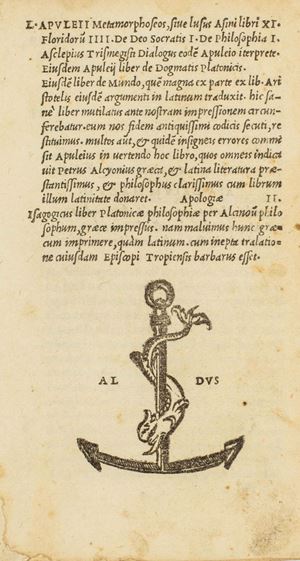 L. APVLEII Metamorphoseos, siue lusus Asini libri XI.
Floridorũ IIII. De Deo Socratis I. De Philosophia I.
Asclepius Trismegisti Dialogus eodẽ Apuleio iterprete.
Eiusdem Apuleij liber de Dogmatis Platonicis.
Eiusdẽ liber de Mundo, quẽ magna ex parte ex lib. Ari
stotelis eiusdẽ argumenti in latinum traduxit. hic sa-
nè liber mutilatus ante nostram impressionem circun-
ferebatur. cum nos fidem antiquissimi codicis secuti, re
stituimus. multos aũt, & quidẽ insignes errores commē
sit Apuleius in vertendo hoc libro, quos omneis indica
uit Petrus Alcyonius græca, & latina literatura præ-
stantissimus, & philosophus clarissimus cum librum
illum latinitate donaret. Apologiæ II.
Isagogicus liber Platonicæ philosophiæ per Alcinoũ philo
sophum, græce impressus. nam maluimus hunc græ-
cum imprimere, quàm latinum. cum inepta tralatio-
ne cuiusdam Episcopi Tropiensis barbarus esset.
AL DVS